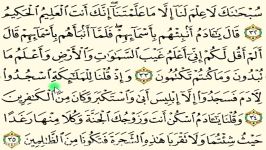 سُبْحَٰنَكَ لَا عِلْمَ لَنَآ إِلَّا مَا عَلَّمْتَنَآ إِنَّكَ أَنتَ ٱلْعَلِيمُ ٱلْحَكِيمُ
٣٢ قَالَ يَٰٓـَٔادَمُ أَنۢبِئْهُم بِأَسْمَآئِهِمْ فَلَمَّآ أَنۢبَأَهُم بِأَسْمَآئِهِمْ قَالَ
أَلَمْ أَقُل لَّكُمْ إِنِّىٓ أَعْلَمُ غَيْبَ ٱلسَّمَٰوَٰتِ وَٱلْأَرْضِ وَأَعْلَمُ مَا
تُبْدُونَ وَمَا كُنتُمْ تَكْتُمُونَ ٣٣ وَإِذْ قُلْنَا لِلْمَلَٰٓئِكَةِ ٱسْجُدُوا۟
لِـَٔادَمَ فَسَجَدُوٓا۟ إِلَّآ إِبْلِيسَ أَبَىٰ وَٱسْتَكْبَرَ وَكَانَ مِنَ ٱلْكَٰفِرِينَ
٣٤ وَقُلْنَا يَٰٓـَٔادَمُ ٱسْكُنْ أَنتَ وَزَوْجُكَ ٱلْجَنَّةَ وَكُلَا مِنْهَا رَغَدًا
حَيْثُ شِئْتُمَا وَلَا تَقْرَبَا هَٰذِهِ ٱلشَّجَرَةَ فَتَكُونَا مِنَ ٱلظَّٰلِمِينَ ٣٥